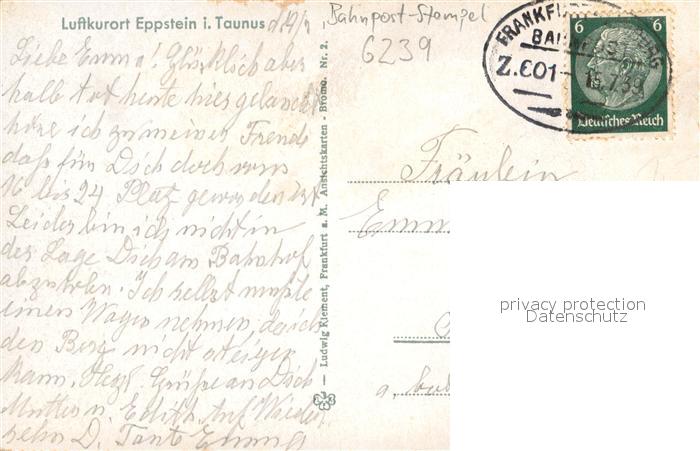 Luftkurort Eppstein i. Taunus d. 14/7
Bahnpost-Stempel
6239
Liebe Emma! Glücklich aber
halb tot heute hier gelandet
höre ich zu meiner Freude
daß für Dich doch vom
16 bis 24 Platz geworden ist
Leider bin ich nicht in
der Lage Dich am Bahnhof
abzuholen. Ich selbst mußte
einen Wagen nehmen, da ich
den Berg nicht steigen
kann. Herzl. Grüße an Dich
Mutter u. Edith. Auf Wieder
sehn D. Tante Emma
— Ludwig Klement, Frankfurt a. M. Ansichtskarten - Bromo. Nr. 2.
BAHNPOST
Z.601
15.7.39
6 6
Deutsches Reich
Fräulein
Emm
privacy protection
Datenschutz
a.